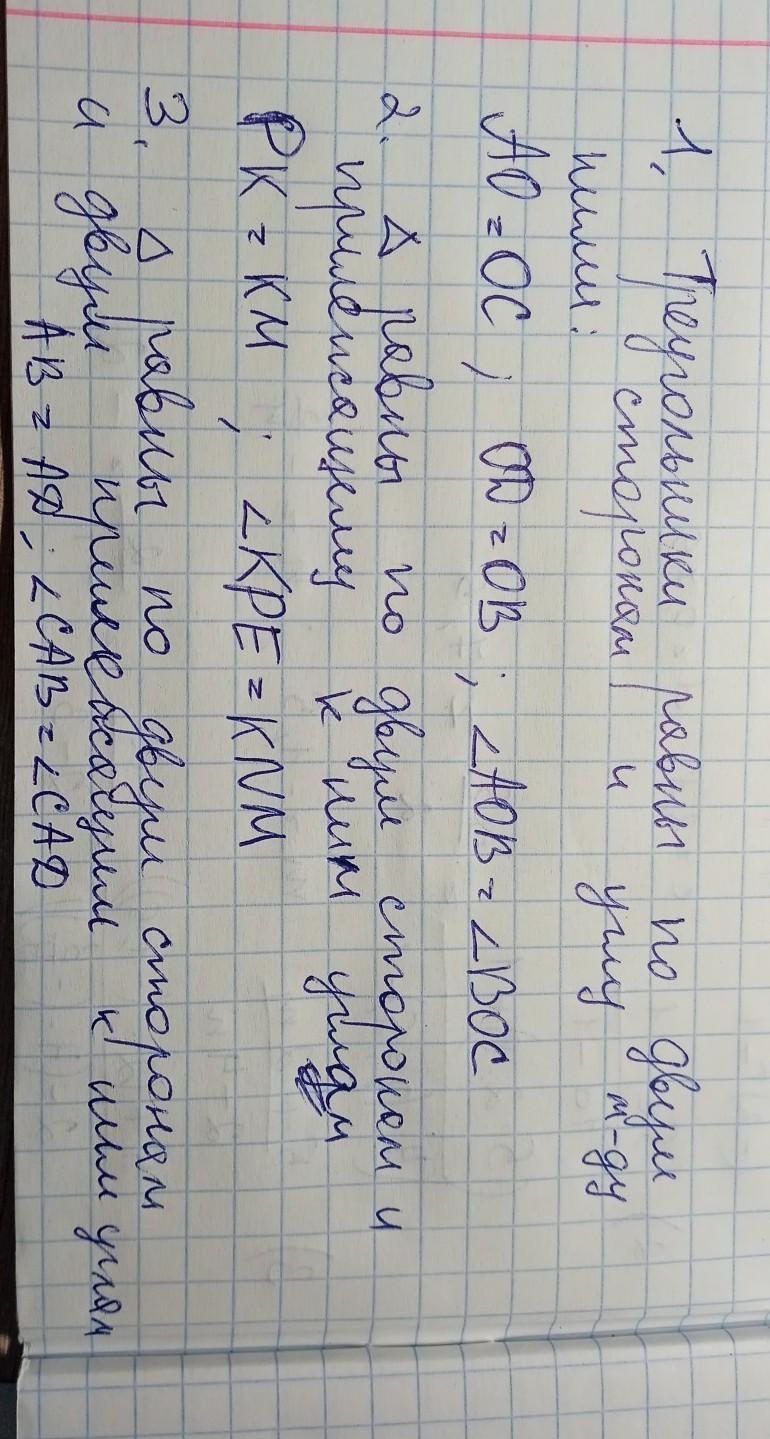 1. Треугольники равны по двум
сторонам и углу м-ду
ними:
AO = OC ; OD = OB ; ∠AOB = ∠BOC
2. Δ равны по двум сторонам и
прилежащему к ним углам
PK = KM ; ∠KPE = KNM
3. Δ равны по двум сторонам
и двум прилежащим к ним углам
AB = AD ; ∠CAB = ∠CAD